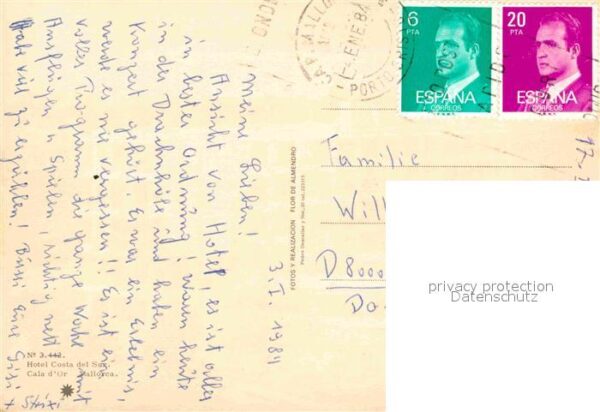 3. I. 1984
Meine Lieben!
Ansicht von Hotel, es ist alles
in bester Ordnung! waren heute
in der Drachenhöle und haben ein
Konzert gehört. Es war ein Erlebnis,
werde es nie vergessen!! Es ist ein
volles Programm die ganze Woche mit
Ausflügen u Spielen, richtig nett
Hab viel zu erzählen! Bussi Eure Sisi
+
Nº 3.442.
Hotel Costa del Sur.
Cala d'Or Mallorca.
FOTOS Y REALIZACION FLOR DE ALMENDRO
6
PTA
ESPAÑA
CORREOS
20
PTA
ESPAÑA
CORREOS
ENE
PORTO
Familie
Will
D8000
privacy protection
Datenschutz